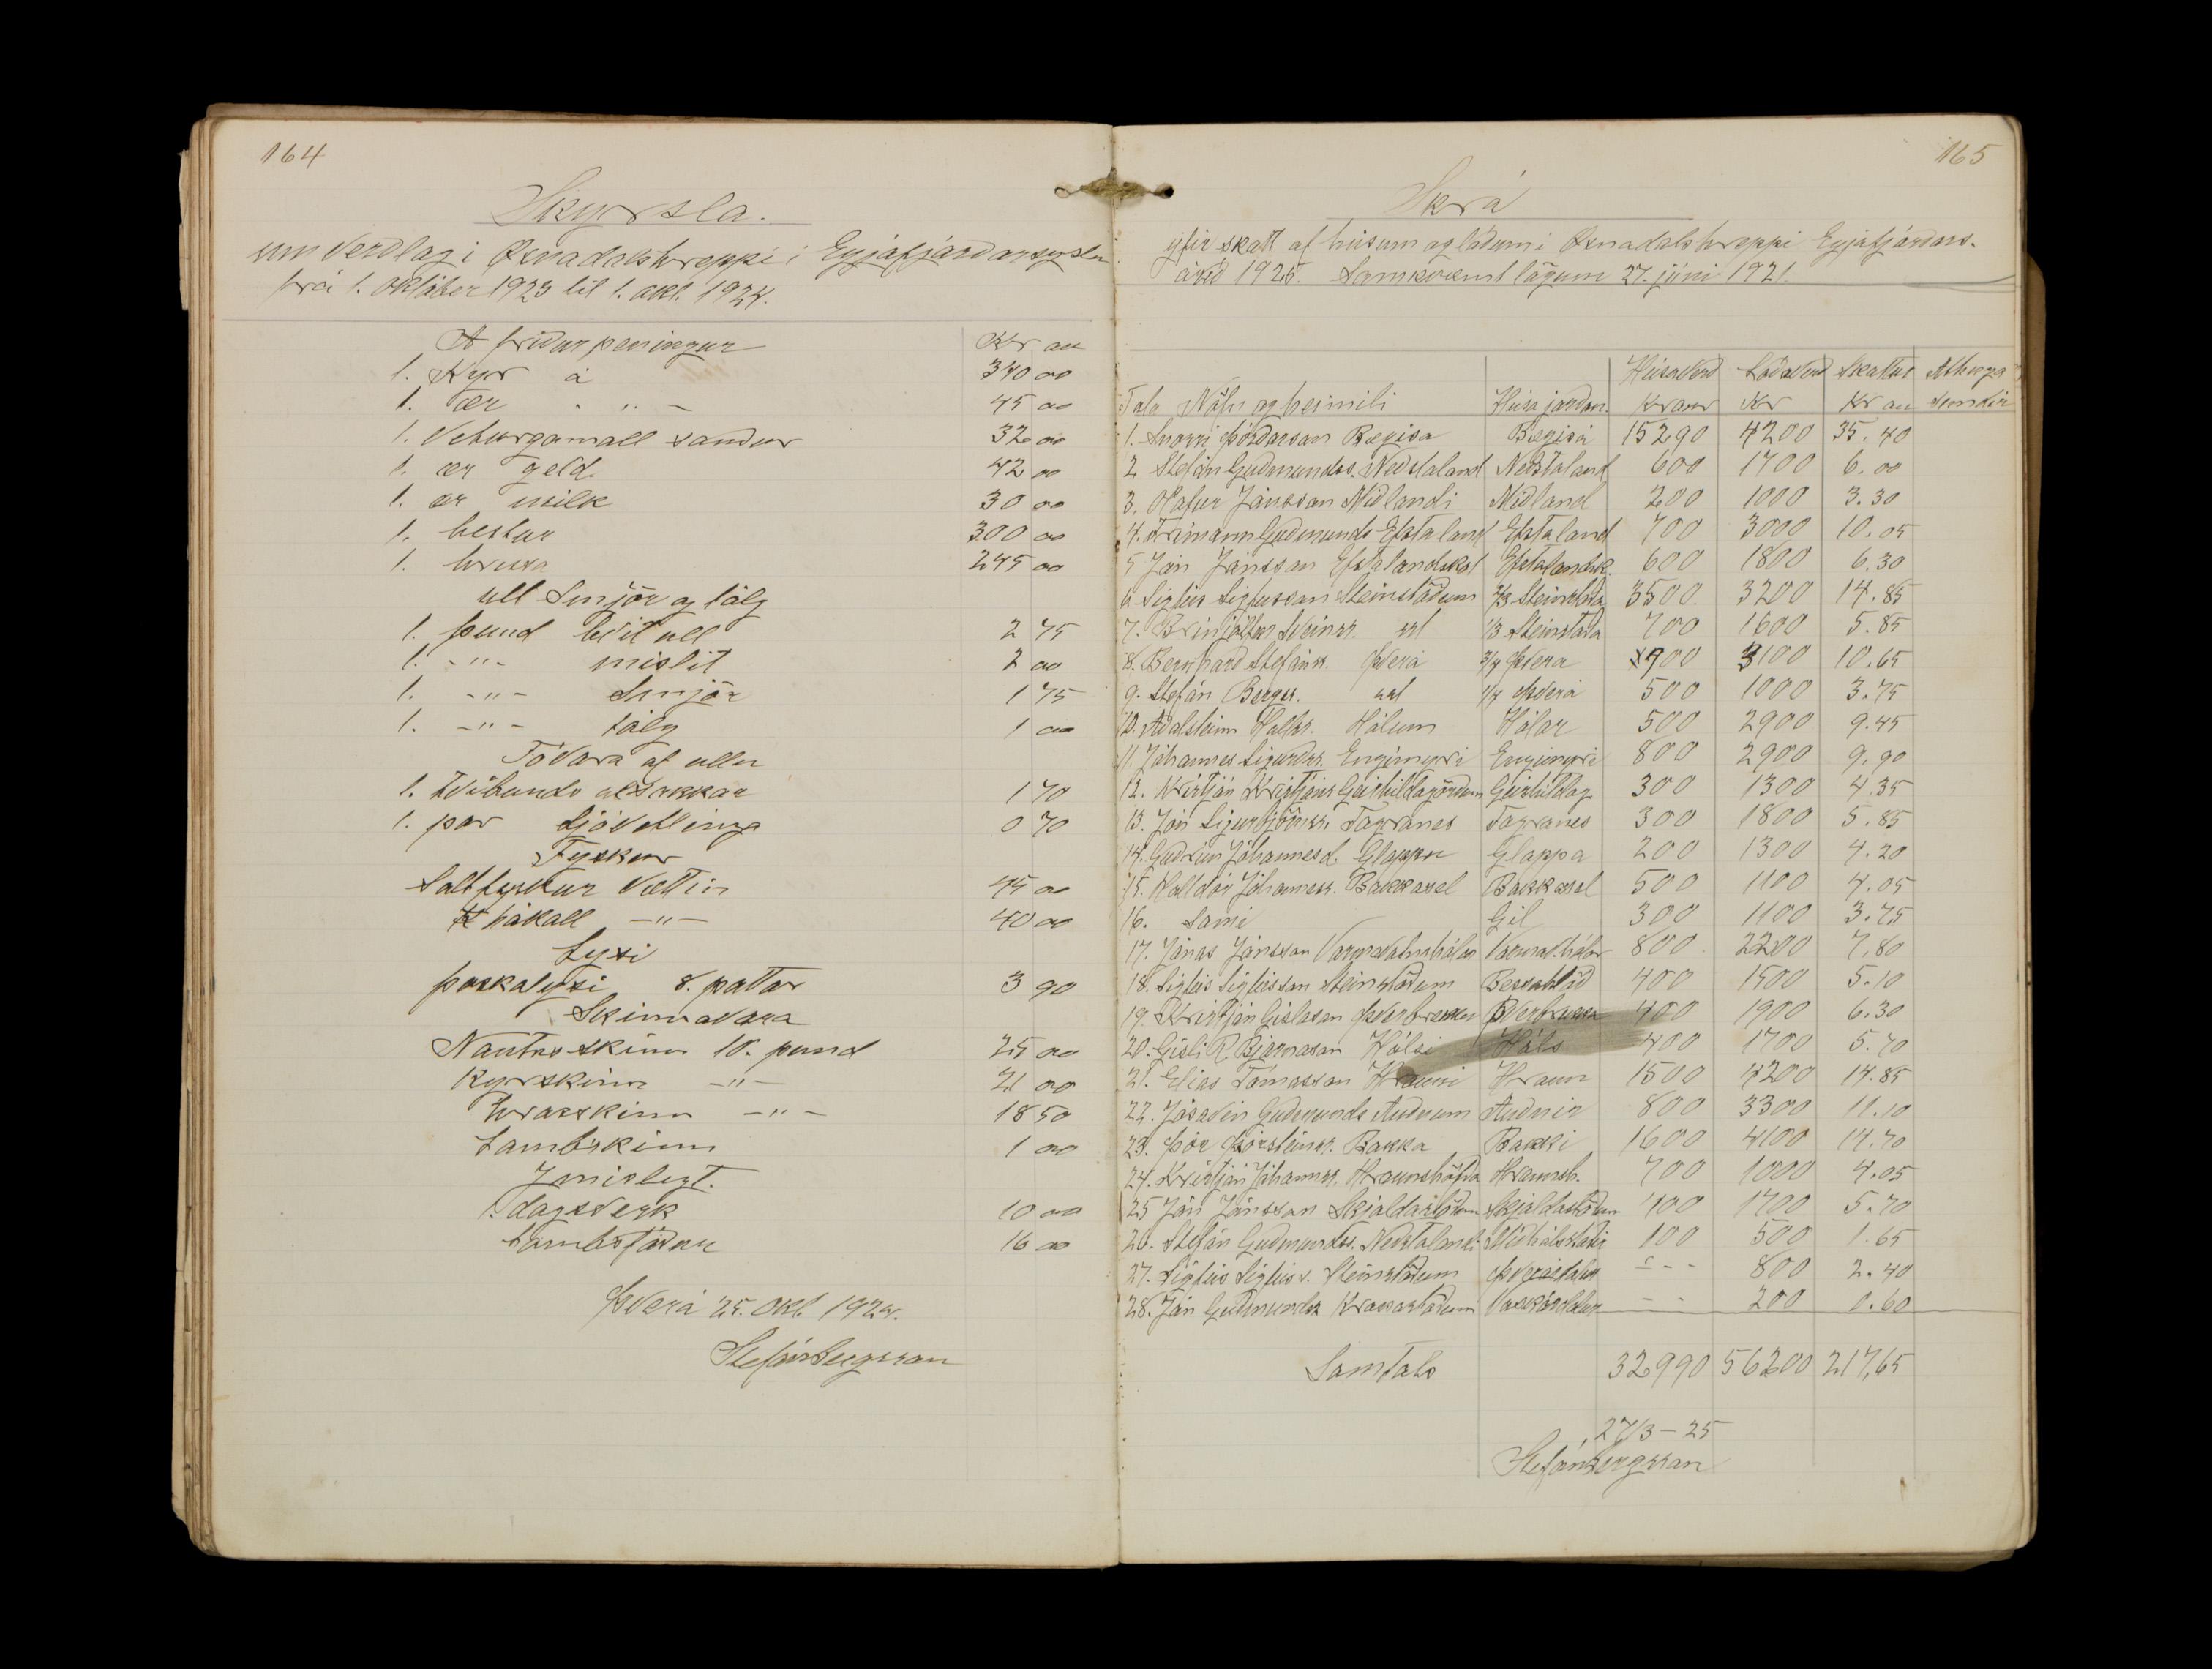 164
Skyrsla.
um verdlag i Öxnadalshreppi i Eyjafjardarsyslu
frá 1. oktober 1923 til 1. okt. 1924.
A fridur peningur Kr au
1. Kyr á 340 00
1. ær - " - 45 00
1. Veturgamall saudur 32 00
1. ær geld 42 00
1. ær milk 30 00
1. hestur 300 00
1. hryssa 245 00
ull Smjör og tólg
1. pund hvit ull 2 75
1. -"- mislit 2 00
1. -"- Smjör 1 75
1. -"- tólg 1 00
Tóvara af ullu
1. tvibands alsokkar 1 70
1. par sjóvetlinga 0 70
Fyskur
Saltfyskur Vættin 45 00
hákall -"- 40 00
Lysi
þorskalysi 8. pottar 3 90
Skinnavara
Nautsskinn 10. pund 25 00
Kyrskinn -"- 21 00
hrossskinn -"- 18 50
Lambskinn 1 00
Ymislegt.
1. dagsverk 10 00
Lambsfódur 16 00
Þverá 25. Okt. 1924.
Stefán Bergsson
165
Skrá
yfir skatt af húsum og lódum i Öxnadalshreppi Eyjafjardars.
árid 1925. Samkvæmt lögum 27. júni 1921.
Tala Nöfn og heimili Húsa jardar. Húsaverd Kr aur Lódaverd Kr Skattur Kr au Athuga semdir
1. Snorri Þórdarson Bægisá Bægisá 15290 4200 35.40
2 Stefán Gudmundss. Nedstaland Nedstaland 600 1700 6.00
3. Olafur Jónsson Midlandi Midland 200 1000 3.30
4. Frimann Gudmunds Efstaland Efstaland 700 3000 10.05
5 Jón Jónsson Efstalandskot Efstalandsk. 600 1800 6.30
6 Sigfús Sigfússon Steinstödum 2/3 Steinstada 3500 3200 14.85
7. Brinjólfur Sveinss. sst 1/3 Steinstada 700 1600 5.85
8. Bernhard Stefánss. Þverá 3/4 Þverá 900 3100 10.65
9. Stefán Bergss. sst 1/4 Þverá 500 1000 3.75
10. Adalsteinn Hallss. Hólum Hólar 500 2900 9.45
11. Jóhannes Sigurdss. Engimyri Engimyri 800 2900 9.90
12. Kristján Kristjánss Geirhildagördum Geirhildag. 300 1300 4.35
13. Jón Sigurbjörnss. Fagranes Fagranes 300 1800 5.85
14. Gudrún Jóhannesd. Glappu Glappa 200 1300 4.20
15. Halldór Jóhanness. Bakkasel Bakkasel 500 1100 4.05
16. Sami Gil 300 1100 3.75
17. Jónas Jónsson Varmavatnshólar Varmat.hólar 800 2200 7.80
18. Sigfús Sigfússon Steinstödum Bessahlöd 400 1500 5.10
19. Kristján Gislason Þverbrekku Þverbrekka 400 1900 6.30
20. Gisli R. Bjarnason Hálsi Háls 400 1700 5.70
21. Elias Tómasson Hrauni Hraun 1500 4200 14.85
22. Jósavin Gudmunds Audnum Audnir 800 3300 11.10
23. Þór Þorsteinss. Bakka Bakki 1600 4100 14.70
24. Kristján Jóhannss. Hraunshöfda Hraunsh. 700 1000 4.05
25 Jón Jónsson Skjaldastödum Skjaldastödum 400 1700 5.70
26. Stefán Gudmundss. Nedstalandi Midhálsstadir 100 500 1.65
27. Sigfús Sigfúss. Steinstödum Þverárdalur - - - 800 2.40
28. Jón Gudmunds Krossastödum Vaskárdalur - - 200 0.60
Samtals 32990 56200 217,65
27/3 - 25
Stefán Bergsson